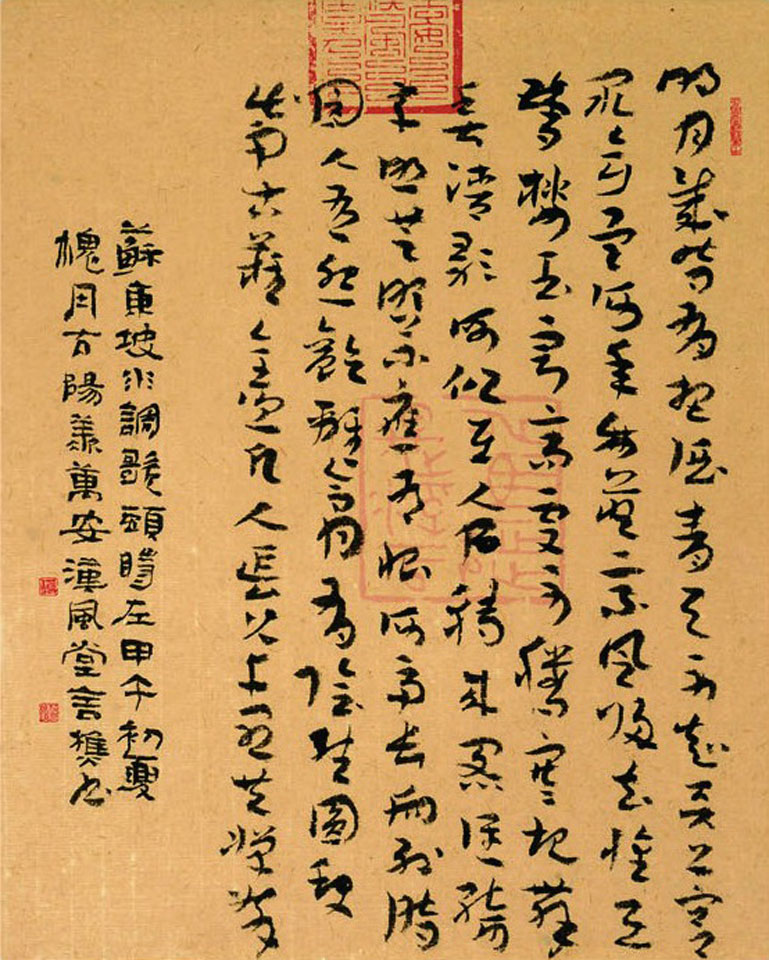 明月幾時有把酒青天不知天上宮
闕今夕是何年我欲乘風歸去惟恐
瓊樓玉宇高處不勝寒起舞
弄清影何似在人間轉朱閣低綺
户照無眠不應有恨何事長向別時
圓人有悲歡離合月有陰晴圓缺
此事古難全但願人長久千里共嬋娟
蘇東坡水調歌頭時在甲午初夏
槐月古陽羨萬安漢風堂言樵書